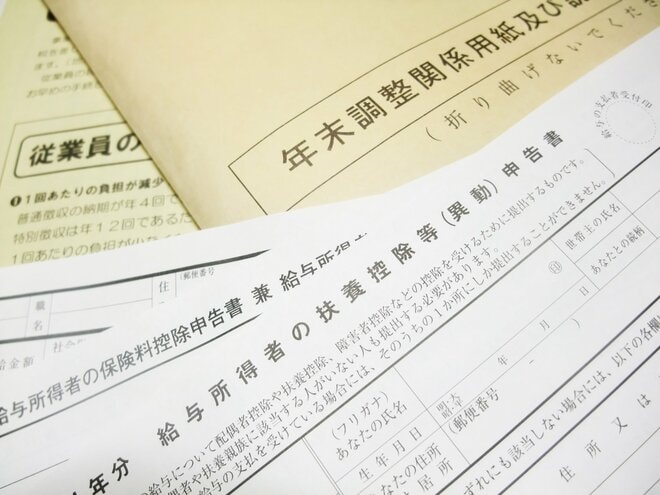 従業員の
❶1回あたりの負担が減少
普通徴収の納期が年4回で
特別徴収は年12回であるた
年末調整関係用紙及び
(折り曲げないでくださ
給与の支払者受付印
給与所得者の扶養控除等(異動)申告書
の給与について配偶者控除や扶養控除、障害者控除などの控除を受けるために提出するものです。
者や扶養親族に該当する人がいない人も提出する必要があります。
給与の支払を受けている場合には、そのうちの1か所にしか提出することができません。
年分
(フリガナ)
あなたの氏名
生年月日
年
月
日
印
世帯主の氏名
あなたとの続柄
(郵便番号
あなたの住所
居所
ずれにも該当しない場合には、以下の各欄
住所又は
給与所得者の保険料控除申告書 兼 給与所得
(郵便番号
住
職
名
給金額